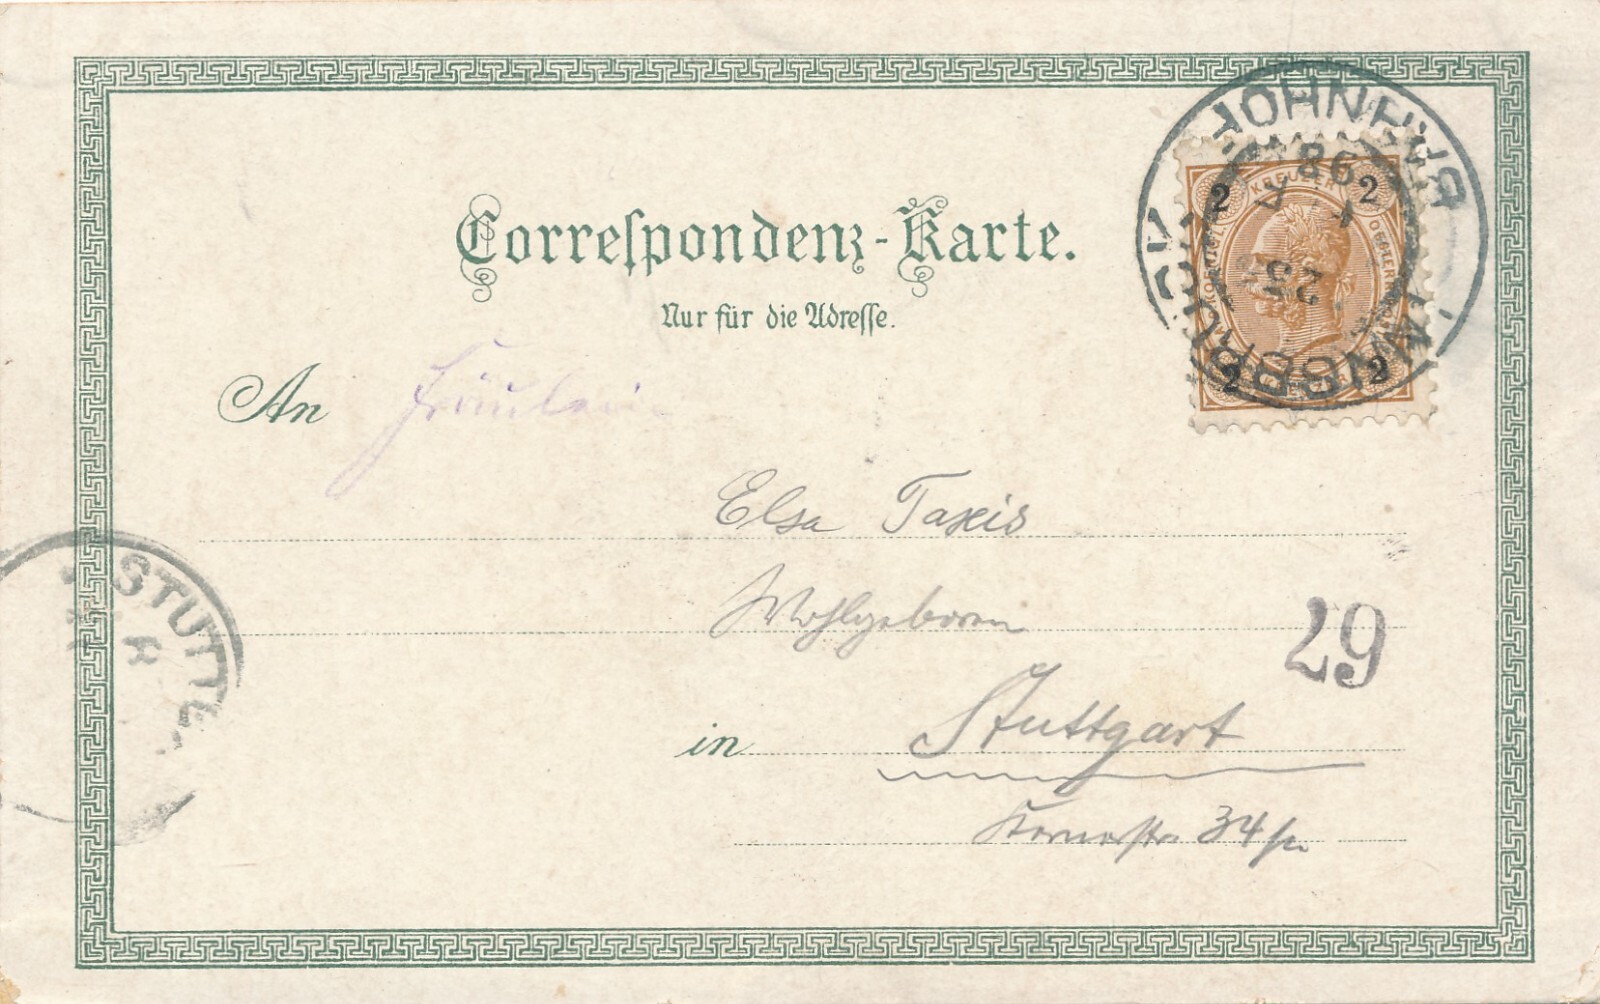 Correspondenz-Karte.
Nur für die Adresse.
An Fräulein
Elsa Taxis
Wohlgeboren
in Stuttgart
34
29
2 KREUZER 2
2 2
INNSBRUCK BAHNHOF
98
STUTTG